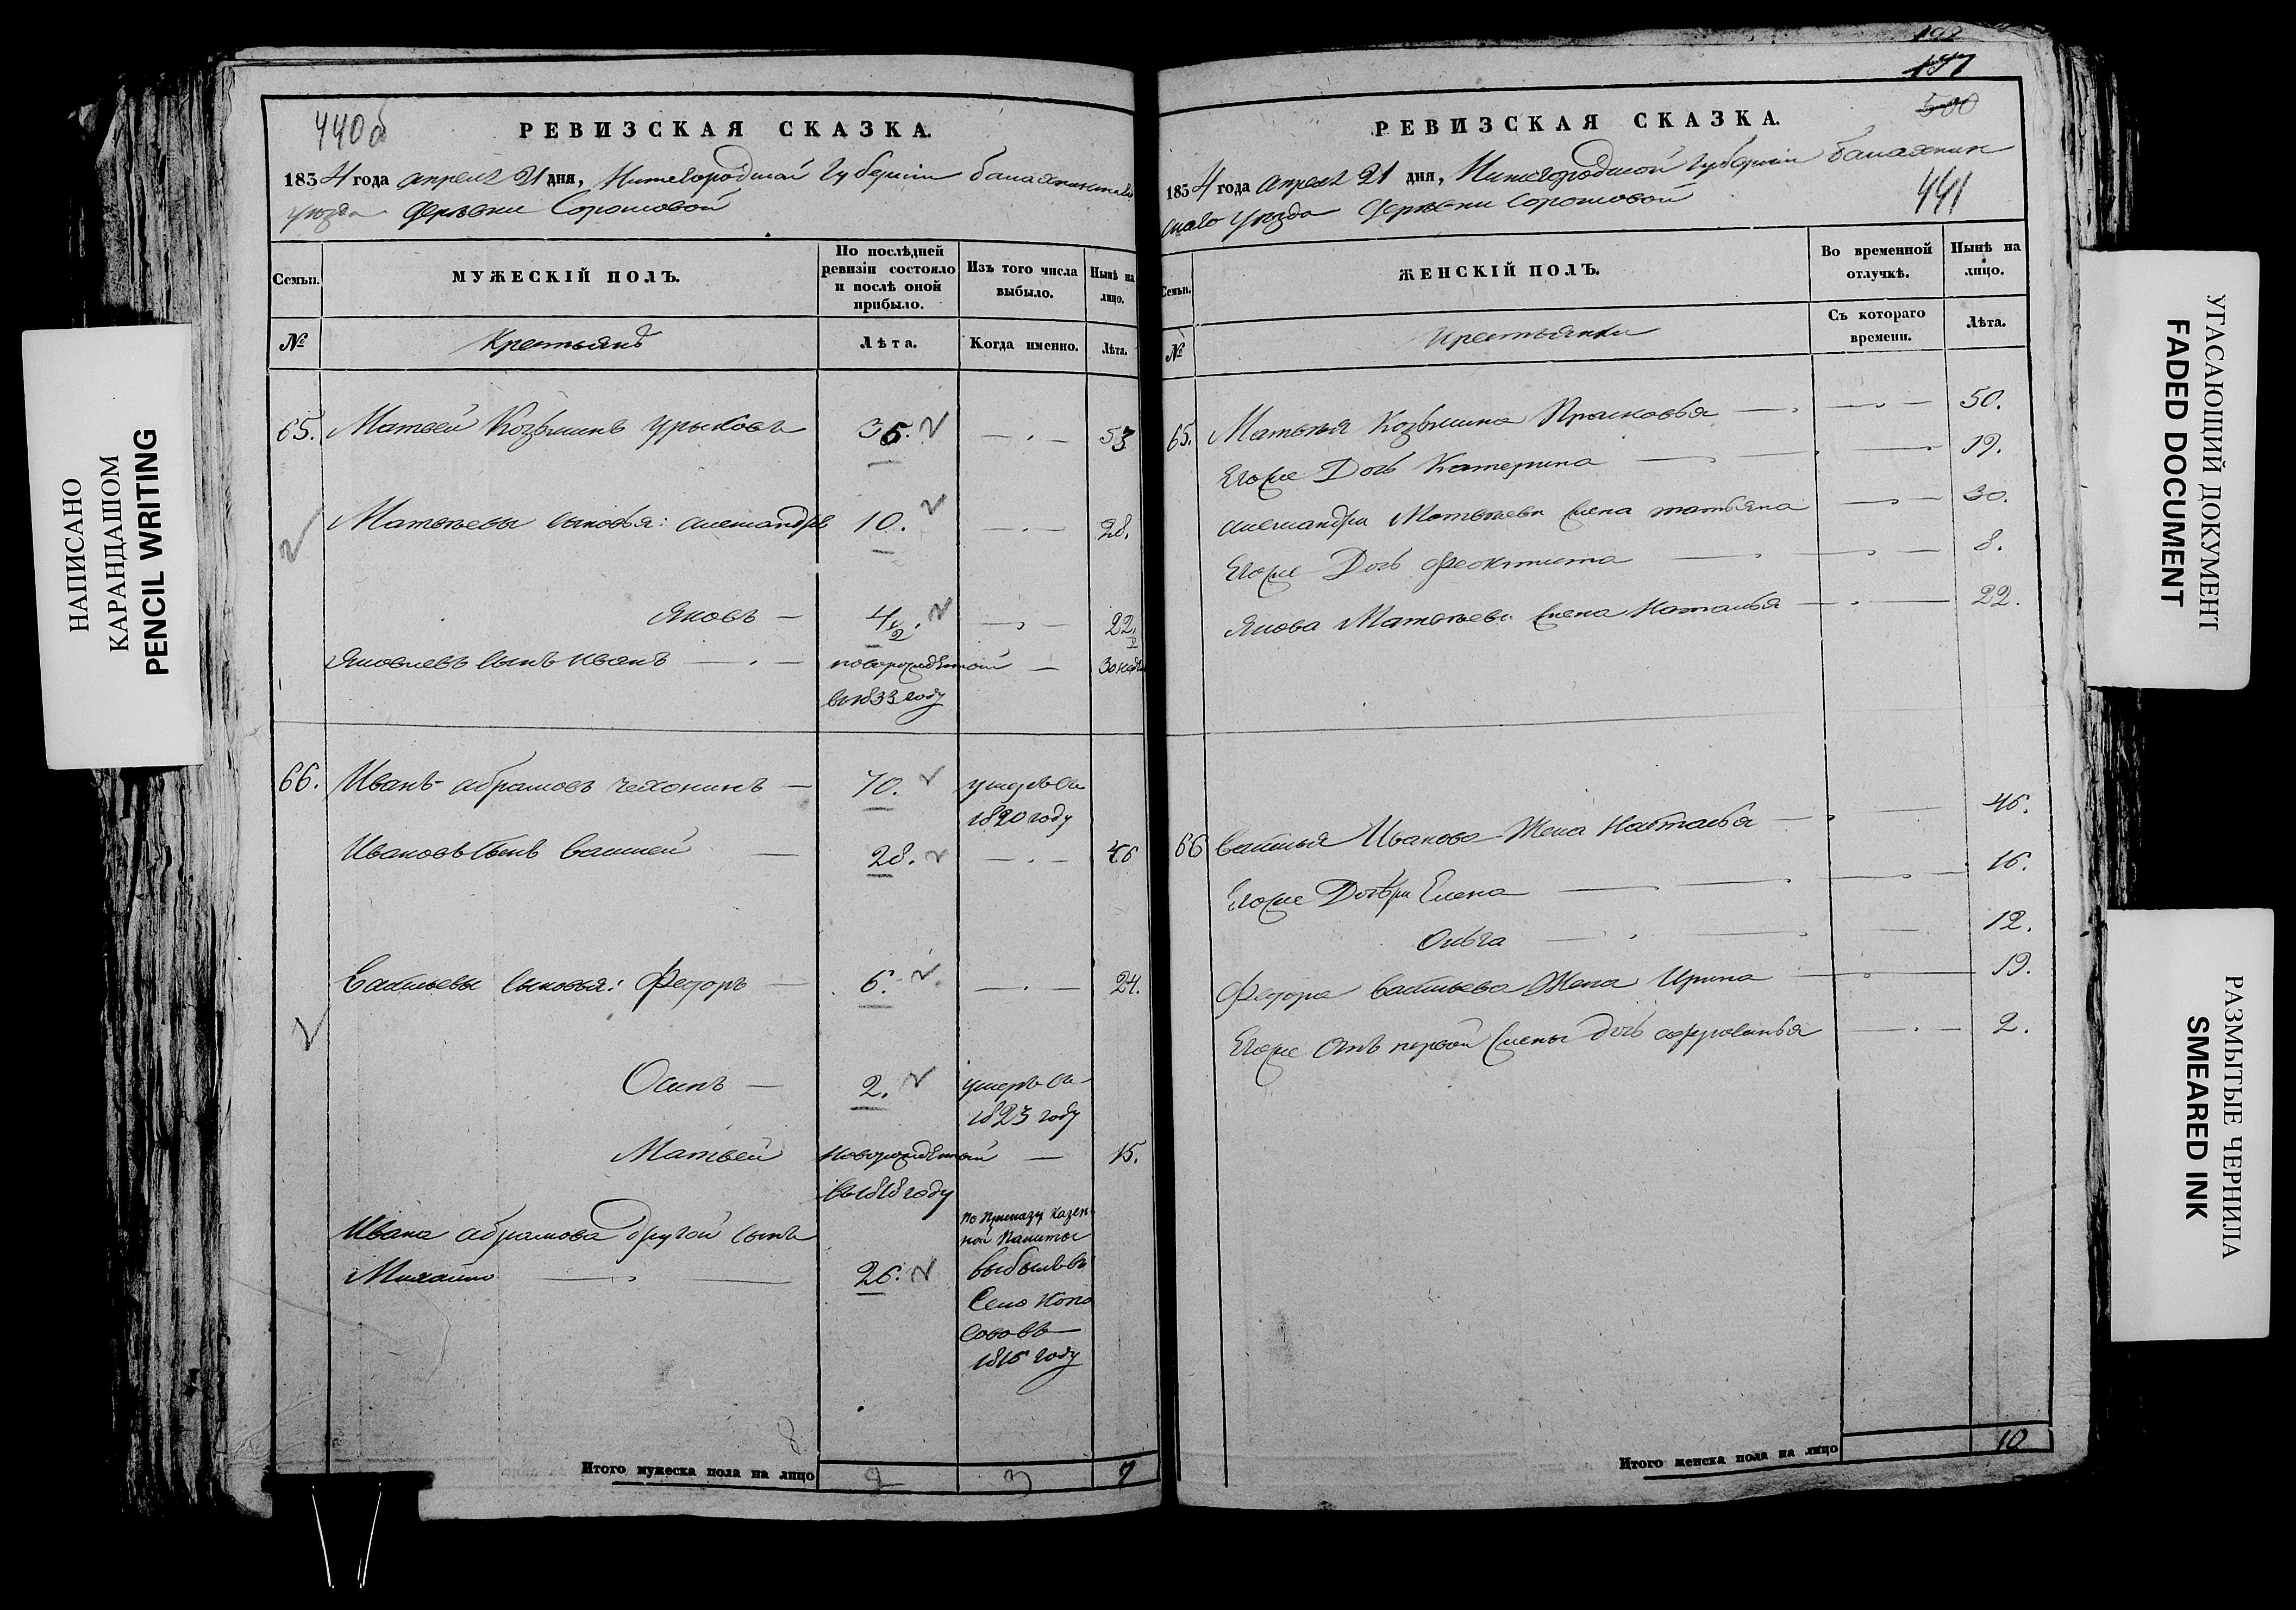 440об
РЕВИЗСКАЯ СКАЗКА.
1834 года апреля 21 дня, Нижегородской губернии Балахнинскаго
уезда деревни Сорошовой
Семьи.
МУЖЕСКІЙ ПОЛЪ.
По послѣдней ревизіи состояло и послѣ оной прибыло.
Изъ того числа выбыло.
Нынѣ на лицо.
№
Крестьянъ
Лѣта.
Когда именно.
Лѣта.
65. Матвей Козьминъ 35. 53
Матвеевы сыновья: александръ 10. 28.
Яковъ 4½. 22½
Яковлевъ сынъ иванъ новорожденной
въ 1833 году
66. Иванъ абрамовъ чехонинъ 70. умеръ въ
1820 году
Ивановъ сынъ василей 28. 46
Васильевы сыновья: Федоръ 6. 24.
Осипъ 2. умеръ въ
1823 году
Матвей новорожденный 15.
въ 1818 году
Ивана абрамова другой сынъ
Михайло 26.
по приказу казен-
ной палаты
выбылъ въ
село Копо
сово въ
1816 году
8
Итого мужеска пола на лицо 9 3 7
192
197
500
441
РЕВИЗСКАЯ СКАЗКА.
1834 года апреля 21 дня, Нижегородской губернии балахнин
скаго уезда деревни Сорошовой
Семьи.
ЖЕНСКІЙ ПОЛЪ.
Во временной отлучкѣ.
Нынѣ на лицо.
№
крестьянки
Съ котораго времени.
Лѣта.
65. Матвея Козьмина Прасковья 50.
Егоже Дочь Катерина 19.
александра Матвеева жена татьяна 30.
Егоже Дочь феоктиста 8.
Якова Матвеева жена Наталья 22.
66 василья Иванова Жена Настасья 46.
Егоже Дочери Елена 16.
Ольга 12.
Федора васильева Жена Ирина 19.
Егоже отъ первой жены дочь 2.
Итого женска пола на лицо 10
НАПИСАНО
КАРАНДАШОМ
PENCIL WRITING
УГАСАЮЩИЙ ДОКУМЕНТ
FADED DOCUMENT
РАЗМЫТЫЕ ЧЕРНИЛА
SMEARED INK